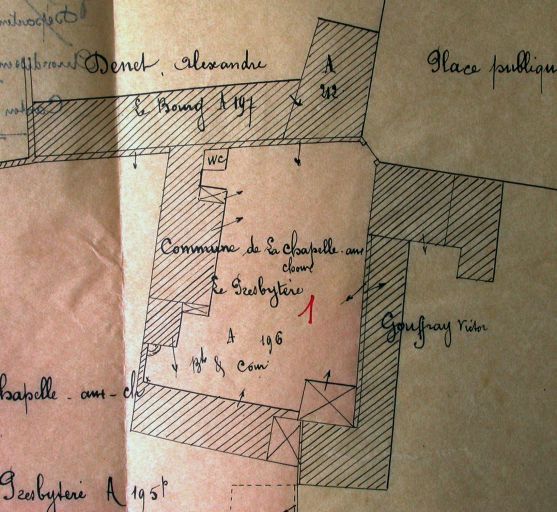 Denet, Alexandre
Place publique
A
212
Le Bourg A 197
WC
Commune de La Chapelle-aux
choux
Le Presbytère
1
A 196
Bts & Cour
Gouffray Victor
chapelle-aux-ch
Presbytère A 195p